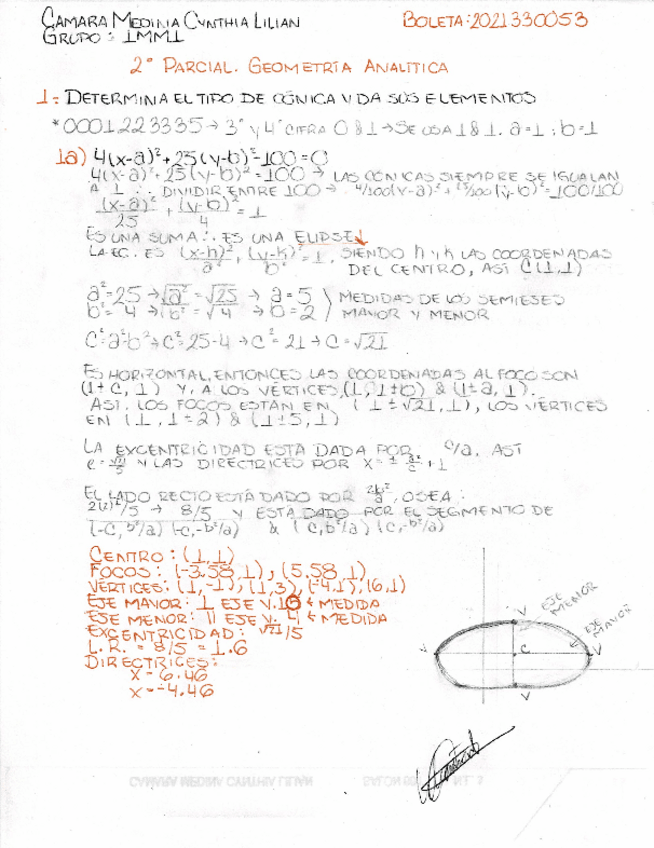 CAMARA MEDINA CYNTHIA LILIAN BOLETA: 2021330053
GRUPO: 1MM1
2° PARCIAL. GEOMETRÍA ANALÍTICA
1= DETERMINA EL TIPO DE CÓNICA Y DA SUS ELEMENTOS
*0001223335 → 3° y 4° CIFRA 0 & 1 → SE USA 1 & 1. a=1 ; b=1
1a) 4(x-a)²+25(y-b)²-100=0
4(x-a)²+25(y-b)²=100 → LAS CÓNICAS SIEMPRE SE IGUALAN
A 1 ∴ DIVIDIR ENTRE 100 → 4/100(x-a)²+25/100(y-b)²=100/100
(x-a)²/25 + (y-b)²/4 = 1
ES UNA SUMA ∴ ES UNA ELIPSE
LA EC. ES (x-h)²/a² + (y-k)²/b² = 1, SIENDO h y k LAS COORDENADAS
DEL CENTRO, ASÍ C(1,1)
a²=25 → √a²=√25 → a=5 MEDIDAS DE LOS SEMIESES
b²=4 → √b²=√4 → b=2 MAYOR Y MENOR
C²=a²-b² → C²=25-4 → C²=21 → C=√21
ES HORIZONTAL, ENTONCES LAS COORDENADAS AL FOCO SON
(1±C, 1) Y, A LOS VÉRTICES, (1, 1±b) & (1±a, 1).
ASÍ, LOS FOCOS ESTÁN EN (1±√21, 1), LOS VÉRTICES
EN (1, 1±2) & (1±5, 1)
LA EXCENTRICIDAD ESTÁ DADA POR c/a. ASÍ
e=√21/5 Y LAS DIRECTRICES POR X=± a²/c +1
EL LADO RECTO ESTÁ DADO POR 2b²/a, O SEA:
2(2)²/5 → 8/5 Y ESTÁ DADO POR EL SEGMENTO DE
(-C, b²/a) (-c, -b²/a) & (C, b²/a) (C, -b²/a)
CENTRO: (1,1)
FOCOS: (-3.58,1), (5.58,1)
VÉRTICES: (1,-1), (1,3), (-4,1), (6,1)
EJE MAYOR: ⊥ EJE Y. 10 ← MEDIDA
EJE MENOR: || EJE Y. 4 ← MEDIDA
EXCENTRICIDAD: √21/5
L.R. = 8/5 = 1.6
DIRECTRICES:
X=6.46
X=-4.46
V
EJE MENOR
EJE MAYOR
V
C
V
V
CAMARA MEDINA CYNTHIA LILIAN